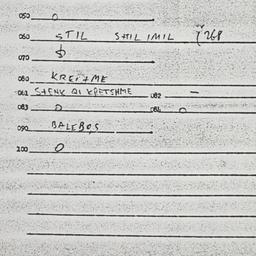 050 0
060 STIL SHILIMIL { 268
070
080 KREITME
081 STENK QI KRETSHME 082 -
083 0 084 0
090 BALEBOS
200 0